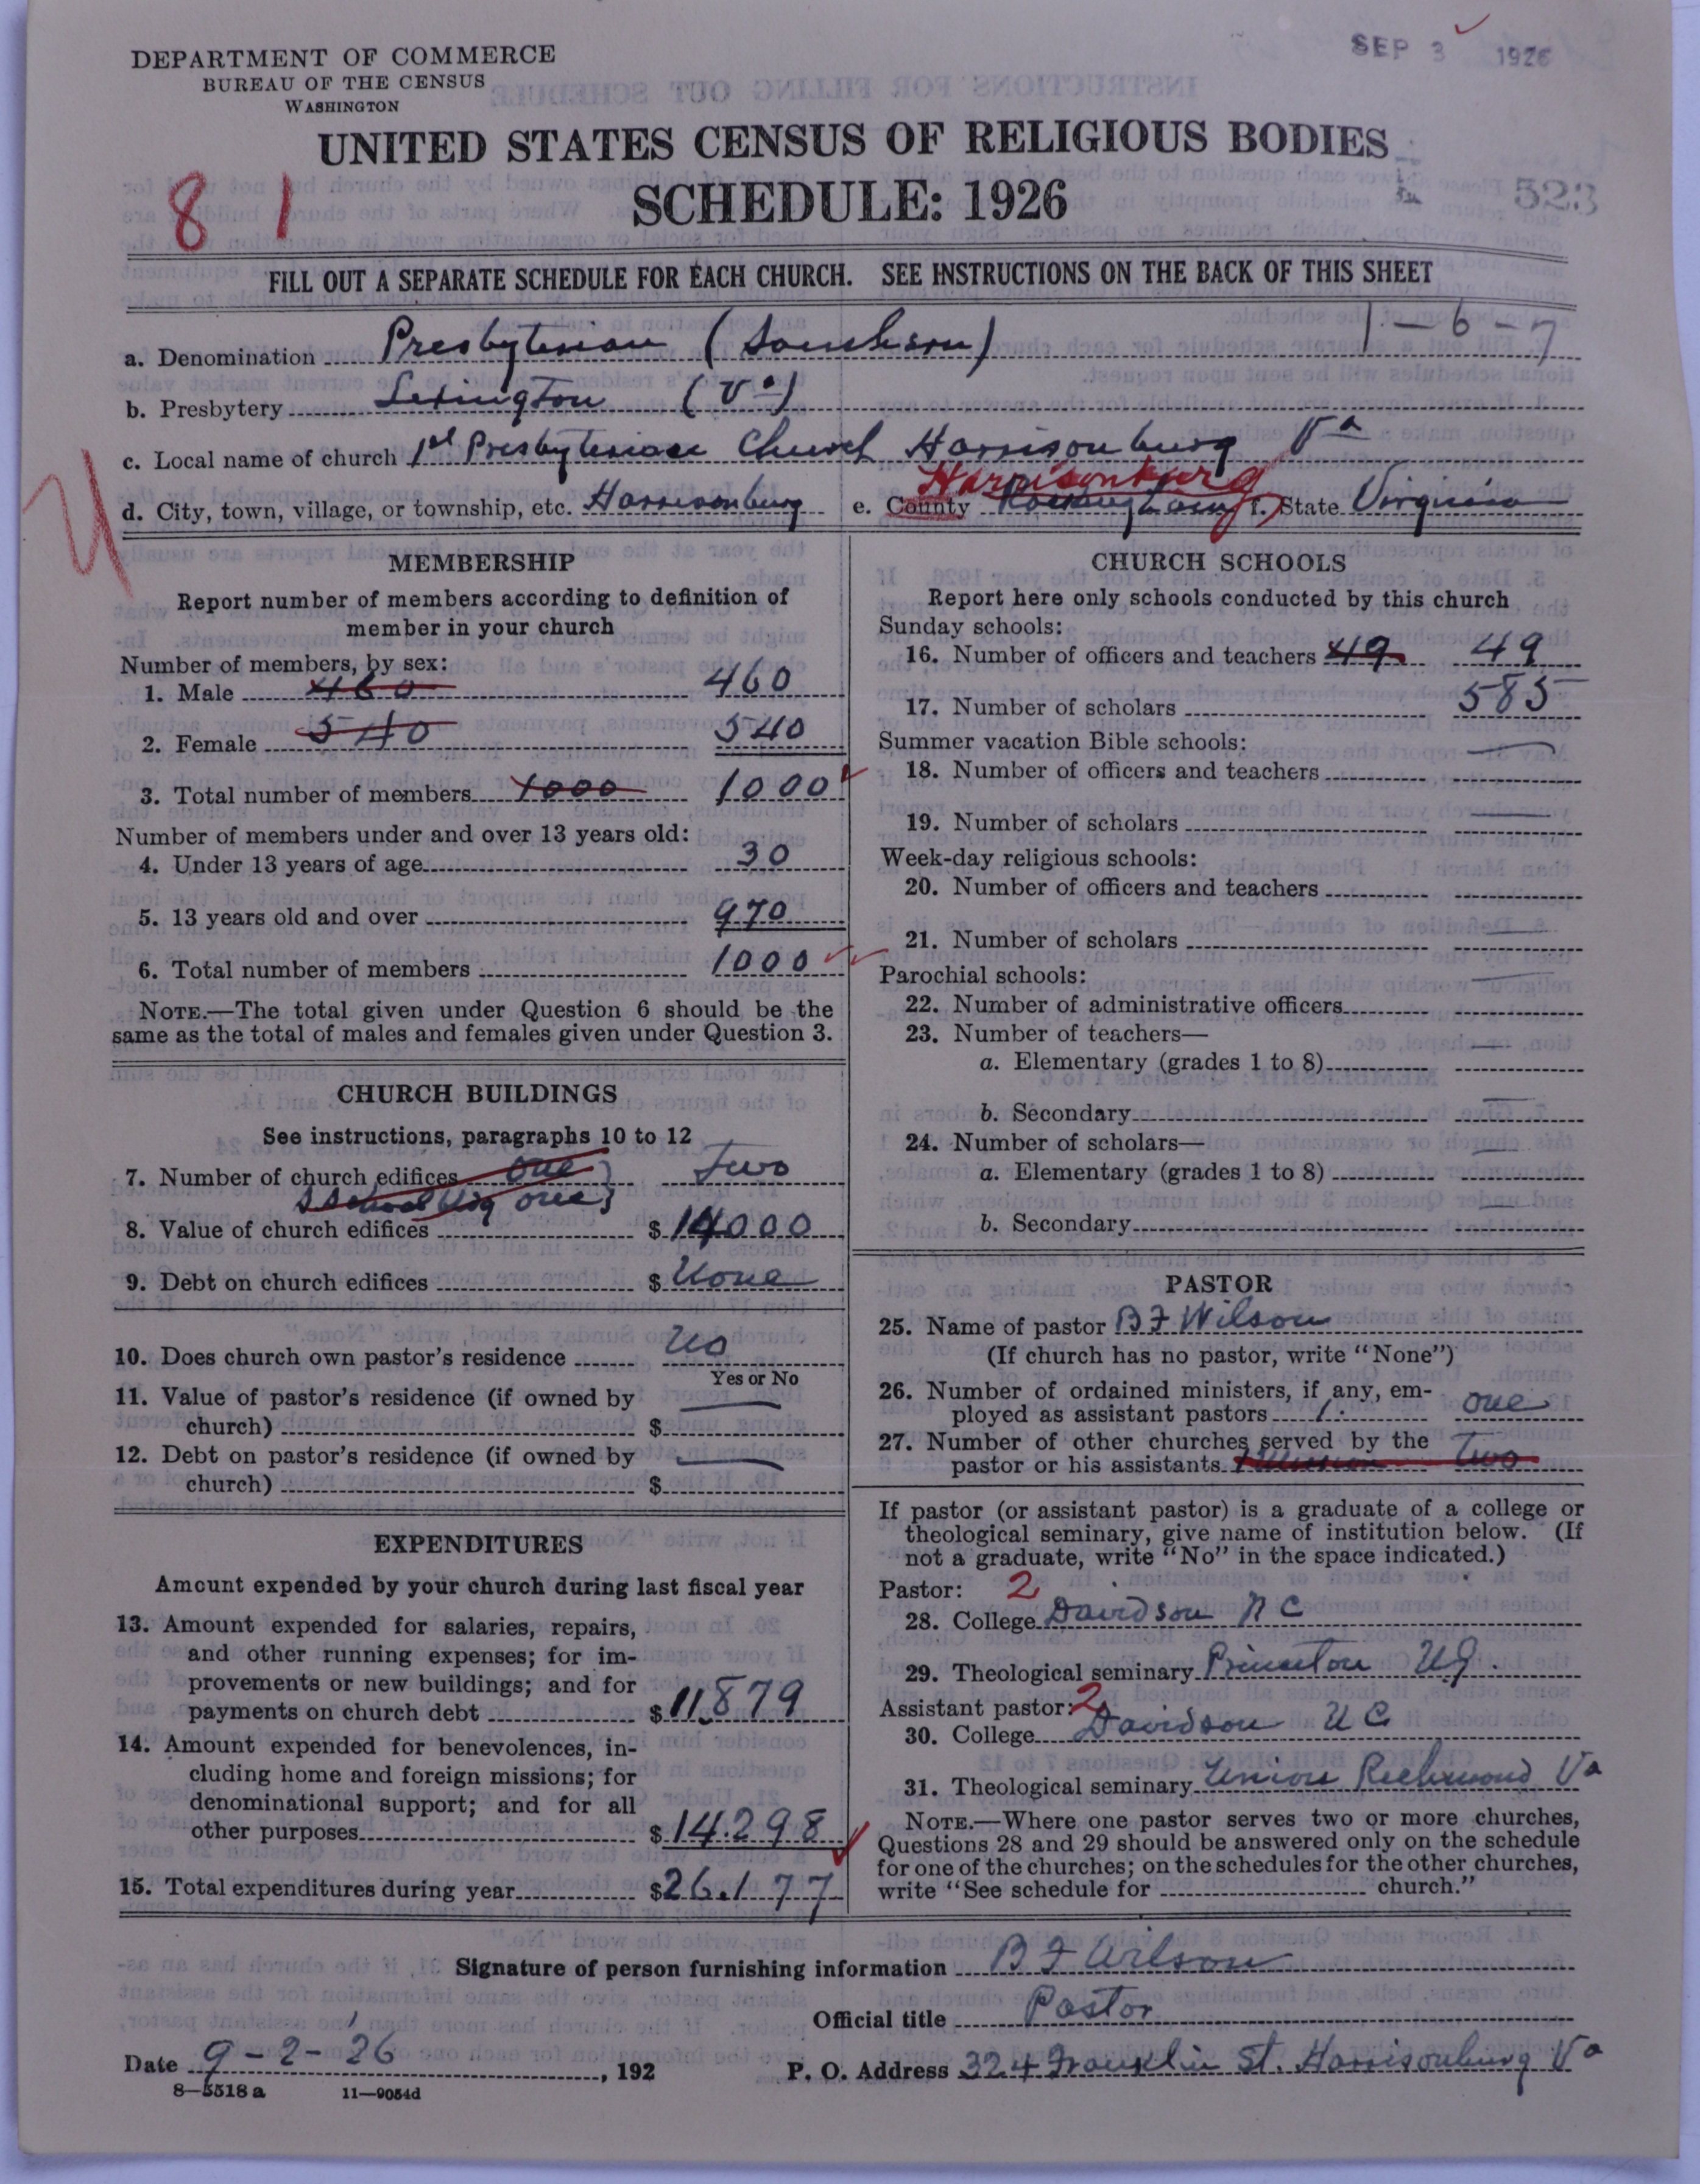 DEPARTMENT OF COMMERCE
BUREAU OF THE CENSUS
WASHINGTON
SEP 3 1926
UNITED STATES CENSUS OF RELIGIOUS BODIES
SCHEDULE: 1926
8 1
523
FILL OUT A SEPARATE SCHEDULE FOR EACH CHURCH. SEE INSTRUCTIONS ON THE BACK OF THIS SHEET
1-6-7
a. Denomination Presbyterian (Southern)
b. Presbytery Lexington (Va)
c. Local name of church 1st Presbyterian Church Harrisonburg Va
Harrisonburg
d. City, town, village, or township, etc. Harrisonburg e. County Rockingham f. State Virginia
MEMBERSHIP
Report number of members according to definition of
member in your church
Number of members, by sex:
1. Male 460 460
2. Female 540 540
3. Total number of members 1000 1000
Number of members under and over 13 years old:
4. Under 13 years of age 30
5. 13 years old and over 970
6. Total number of members 1000
NOTE.—The total given under Question 6 should be the
same as the total of males and females given under Question 3.
CHURCH BUILDINGS
See instructions, paragraphs 10 to 12
7. Number of church edifices one Two
School bldg one
8. Value of church edifices $ 14000
9. Debt on church edifices $ None
10. Does church own pastor's residence No
Yes or No
11. Value of pastor's residence (if owned by
church) $
12. Debt on pastor's residence (if owned by
church) $
EXPENDITURES
Amount expended by your church during last fiscal year
13. Amount expended for salaries, repairs,
and other running expenses; for im-
provements or new buildings; and for
payments on church debt $ 11.879
14. Amount expended for benevolences, in-
cluding home and foreign missions; for
denominational support; and for all
other purposes $ 14.298
15. Total expenditures during year $ 26.177
CHURCH SCHOOLS
Report here only schools conducted by this church
Sunday schools:
16. Number of officers and teachers 49 49
17. Number of scholars 585
Summer vacation Bible schools:
18. Number of officers and teachers
19. Number of scholars
Week-day religious schools:
20. Number of officers and teachers
21. Number of scholars
Parochial schools:
22. Number of administrative officers
23. Number of teachers—
a. Elementary (grades 1 to 8)
b. Secondary
24. Number of scholars—
a. Elementary (grades 1 to 8)
b. Secondary
PASTOR
25. Name of pastor B F Wilson
(If church has no pastor, write "None")
26. Number of ordained ministers, if any, em-
ployed as assistant pastors 1 one
27. Number of other churches served by the
pastor or his assistants Two
If pastor (or assistant pastor) is a graduate of a college or
theological seminary, give name of institution below. (If
not a graduate, write "No" in the space indicated.)
Pastor: 2
28. College Davidson N C
29. Theological seminary Princeton N J.
Assistant pastor: 2
30. College Davidson N C
31. Theological seminary Union Richmond Va
NOTE.—Where one pastor serves two or more churches,
Questions 28 and 29 should be answered only on the schedule
for one of the churches; on the schedules for the other churches,
write "See schedule for church."
Signature of person furnishing information B F Wilson
Official title Pastor
Date 9-2-'26, 192 P. O. Address 324 Franklin St. Harrisonburg Va
8—5518 a 11—9054d